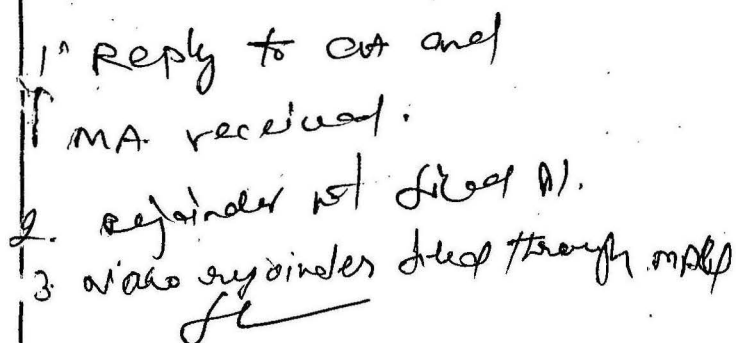 1. Reply to OA and
MA received.
2. rejoinder not filed
3. rejoinder filed through